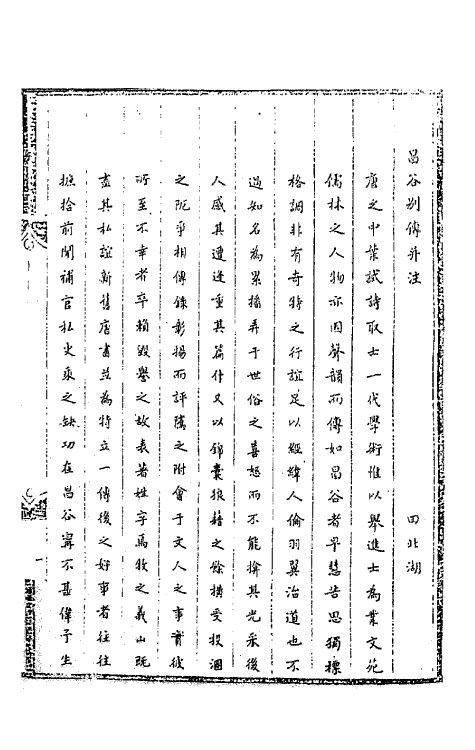 昌谷别傳并注　田北湖
唐之中葉試詩取士一代學術惟以舉進士為業文苑
儒林之人物亦因聲韻而傳如昌谷者早慧苦思獨標
格調非有奇特之行誼足以經緯人倫羽翼治道也不
過知名為累播弄于世俗之喜怒而不能揜其光采後
人感其遭逢重其篇什又以錦囊狼藉之餘橫受投溷
之阨爭相傳錄彰揚而評隲之附會于文人之事實彼
所至不幸者卒賴毀譽之故表著姓字焉牧之義山既
盡其私誼新舊唐書並為特立一傳後之好事者往往
摭拾前聞補官私史乘之缺功在昌谷寗不甚偉予生
一